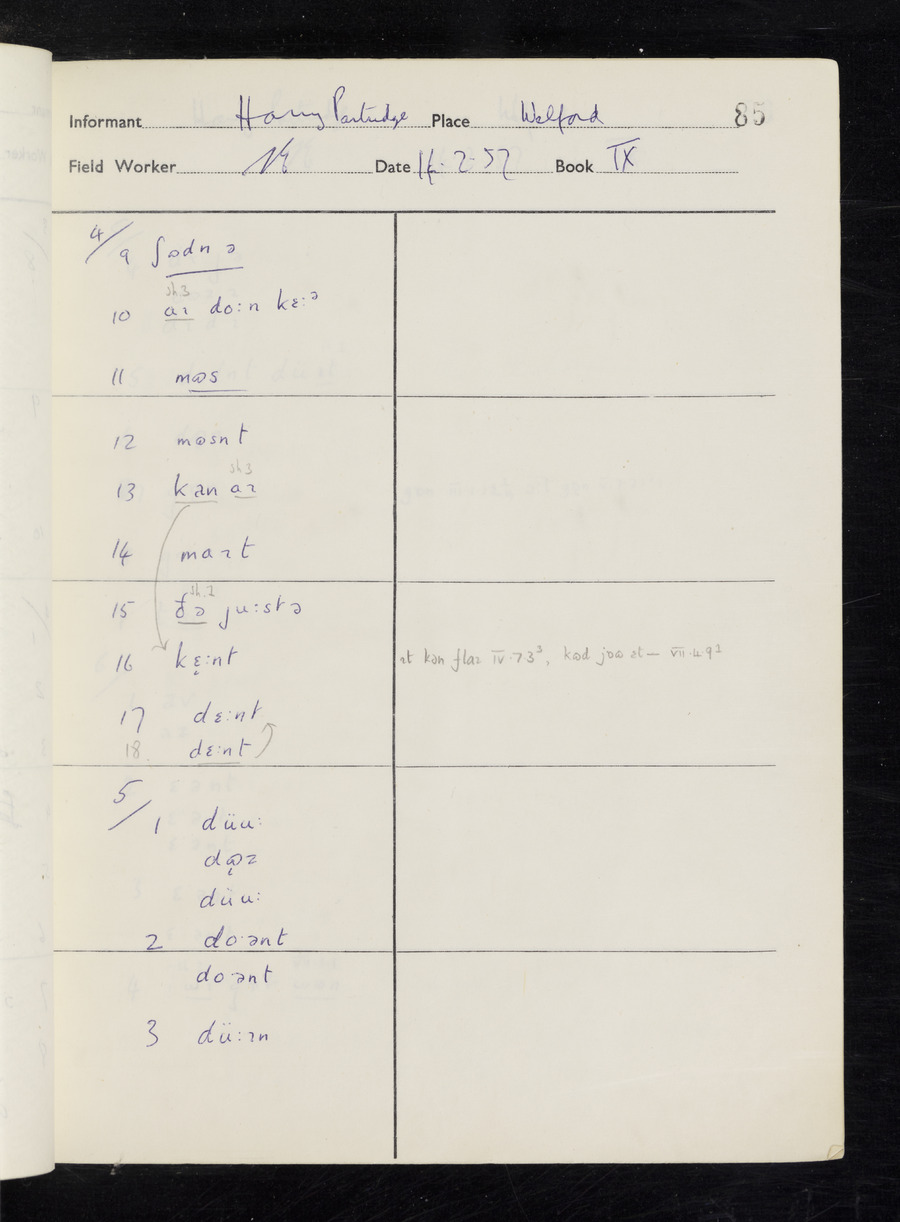 Informant Harry Partridge Place Welford 85
Field Worker Date 14.2.57 Book IX
4/9 ʃɷdn ə
sh3
10 aɪ do:n kɛ:ə
11 mɷs
12 mɷsnt
sh3
13 kan aɪ
14 maɪt
sh.2
15 ðə ju:stə
16 kɛ̨:nt ɪt kən flaɪ IV.7.3³, kɷd jɷɷ ɛt — VII.4.9²
17 dɛ:nt
18 dɛ:nt
5/1 düu:
dɷ̨z
düu:
2 do·ənt
do·ənt
3 dü:ɪn